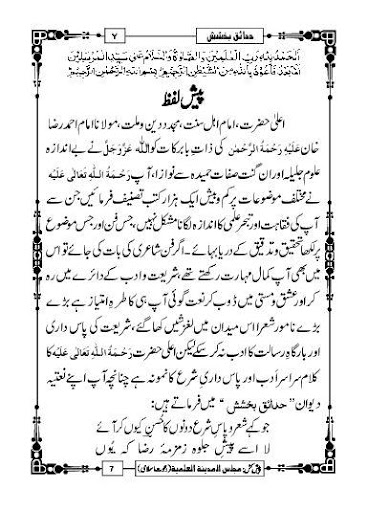 حدائقِ بخشش
۷
اَلْحَمْدُ لِلّٰہِ رَبِّ الْعٰلَمِیْنَ وَالصَّلٰوۃُ وَالسَّلَامُ عَلٰی سَیِّدِ الْمُرْسَلِیْنَ
اَمَّا بَعْدُ فَاَعُوْذُ بِاللّٰہِ مِنَ الشَّیْطٰنِ الرَّجِیْمِ بِسْمِ اللّٰہِ الرَّحْمٰنِ الرَّحِیْمِ
پیش لفظ
اعلیٰ حضرت، امام اہل سنت، مجدد دین و ملت، مولانا امام احمد رضا
خان عَلَیْہِ رَحْمَۃُ الرَّحْمٰن کی ذات بابرکات کو اللّٰہ عَزَّوَجَلَّ نے بے اندازہ
علوم جلیلہ اور ان گنت صفات حمیدہ سے نوازا، آپ رَحْمَۃُ اللّٰہِ تَعَالٰی عَلَیْہ
نے مختلف موضوعات پر کم و بیش ایک ہزار کتب تصنیف فرمائیں جن سے
آپ کی فقاہت اور تبحر علمی کا اندازہ لگانا مشکل نہیں، جس فن اور جس موضوع
پر لکھا تحقیق و تدقیق کے دریا بہائے۔ اگر فن شاعری کی بات کی جائے تو اس
میں بھی آپ کمال مہارت رکھتے تھے، شریعت و ادب کے دائرے میں رہ
کر اور عشق و مستی میں ڈوب کر نعت گوئی آپ ہی کا طرہ امتیاز ہے بڑے
بڑے نامور شعرا اس میدان میں لغزشیں کھا گئے، شریعت کی پاس داری
اور بارگاہِ رسالت کا ادب نہ کر سکے لیکن اعلیٰ حضرت رَحْمَۃُ اللّٰہِ تَعَالٰی عَلَیْہ کا
کلام سراسر ادب اور پاس داری شرع کا نمونہ ہے چنانچہ آپ اپنے نعتیہ
دیوان ”حدائقِ بخشش“ میں فرماتے ہیں:
جو کہے شعر و پاسِ شرع دونوں کا حُسن کیوں کر آئے
لا اسے پیشِ جلوہ زمزمۂ رضا کہ یُوں
پیش کش: مجلس المدینۃ العلمیۃ (دعوتِ اسلامی)
7